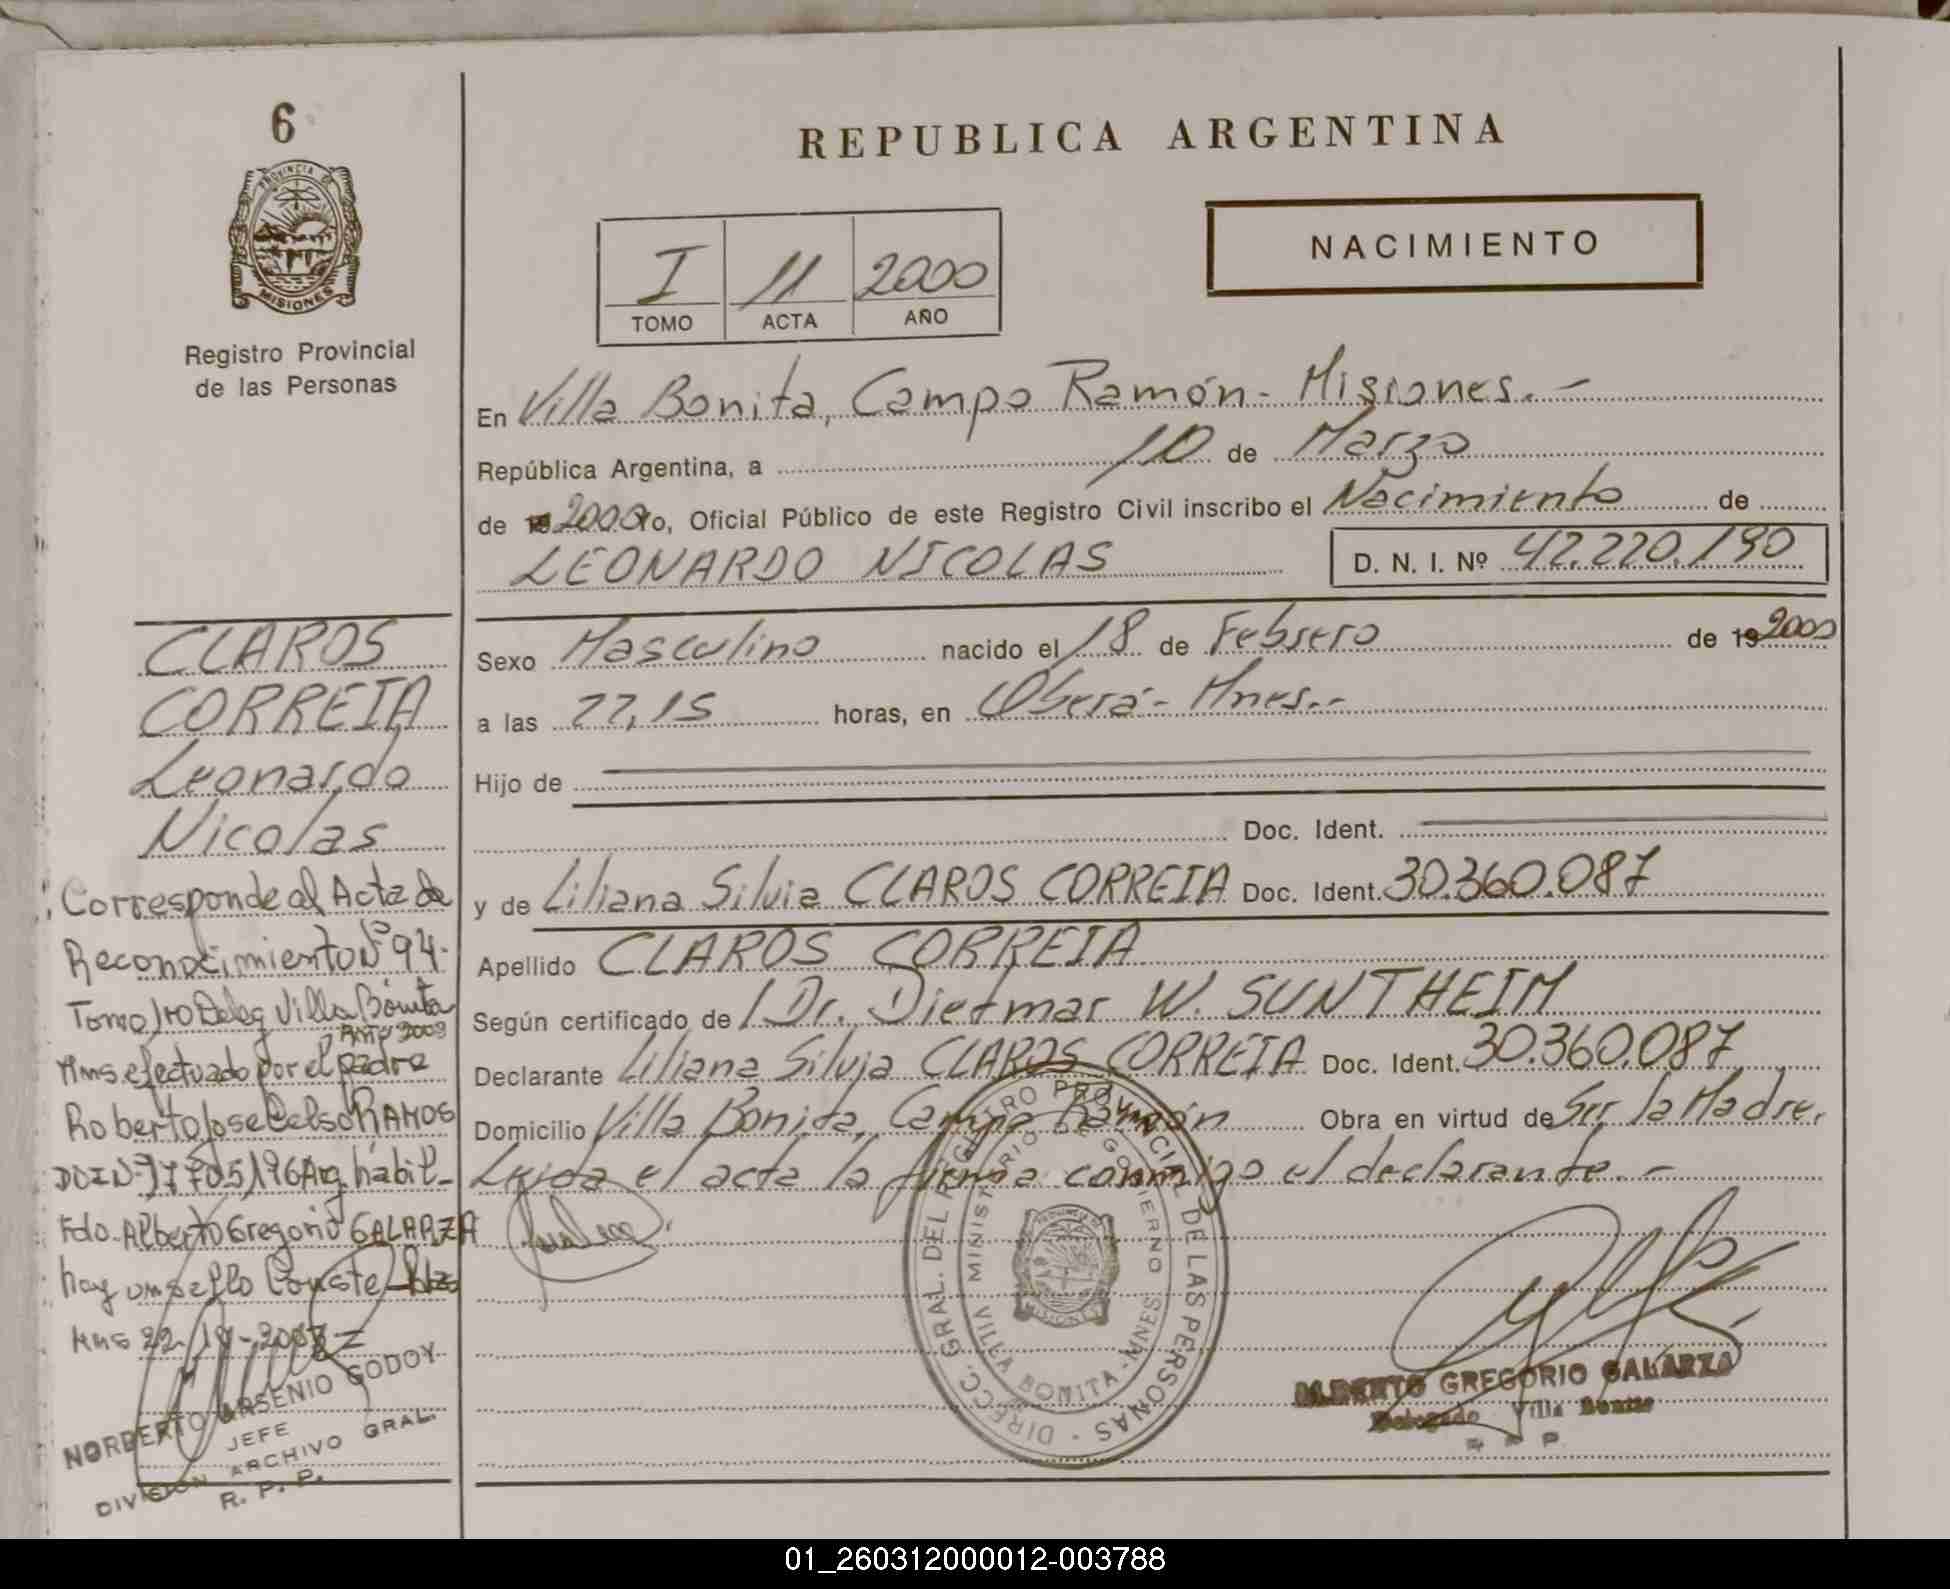 6
PROVINCIA DE
MISIONES
Registro Provincial
de las Personas
REPUBLICA ARGENTINA
NACIMIENTO
I 11 2000
TOMO ACTA AÑO
En Villa Bonita, Campo Ramón - Misiones.-
República Argentina, a 10 de Marzo
de 19 2000 Yo, Oficial Público de este Registro Civil inscribo el Nacimiento de
LEONARDO NICOLAS D. N. I. Nº 42.220.190
Sexo Masculino nacido el 18 de Febrero de 19 2000
a las 22,15 horas, en Oberá - Mnes.-
Hijo de
Doc. Ident.
y de Liliana Silvia CLAROS CORREIA Doc. Ident. 30.360.087
Apellido CLAROS CORREIA
Según certificado de Dr. Dietmar W. SUNTHEIM
Declarante Liliana Silvia CLAROS CORREIA Doc. Ident. 30.360.087
Domicilio Villa Bonita, Campo Ramón Obra en virtud de Ser la Madre.
Leida el acta la firma conmigo el declarante.-
DIRECC. GRAL. DEL REGISTRO PROVINCIAL DE LAS PERSONAS
MINISTERIO DE GOBIERNO
VILLA BONITA - MNES
ALBERTO GREGORIO GALARZA
Delegado Villa Bonita
R P P
CLAROS
CORREIA
Leonardo
Nicolas
Corresponde al Acta de
Reconocimiento Nº 94.
Tomo 1ro Deleg Villa Bonita
Año 2003
Mns efectuado por el padre
Roberto Jose Celso RAMOS
DNI Nº 17705196 Arg. habil-
Fdo. Alberto Gregorio GALARZA
hay un sello Conste
Mns 22-
NORBERTO ARSENIO GODOY
JEFE
DIVISION ARCHIVO GRAL.
R. P. P.
01_260312000012-003788